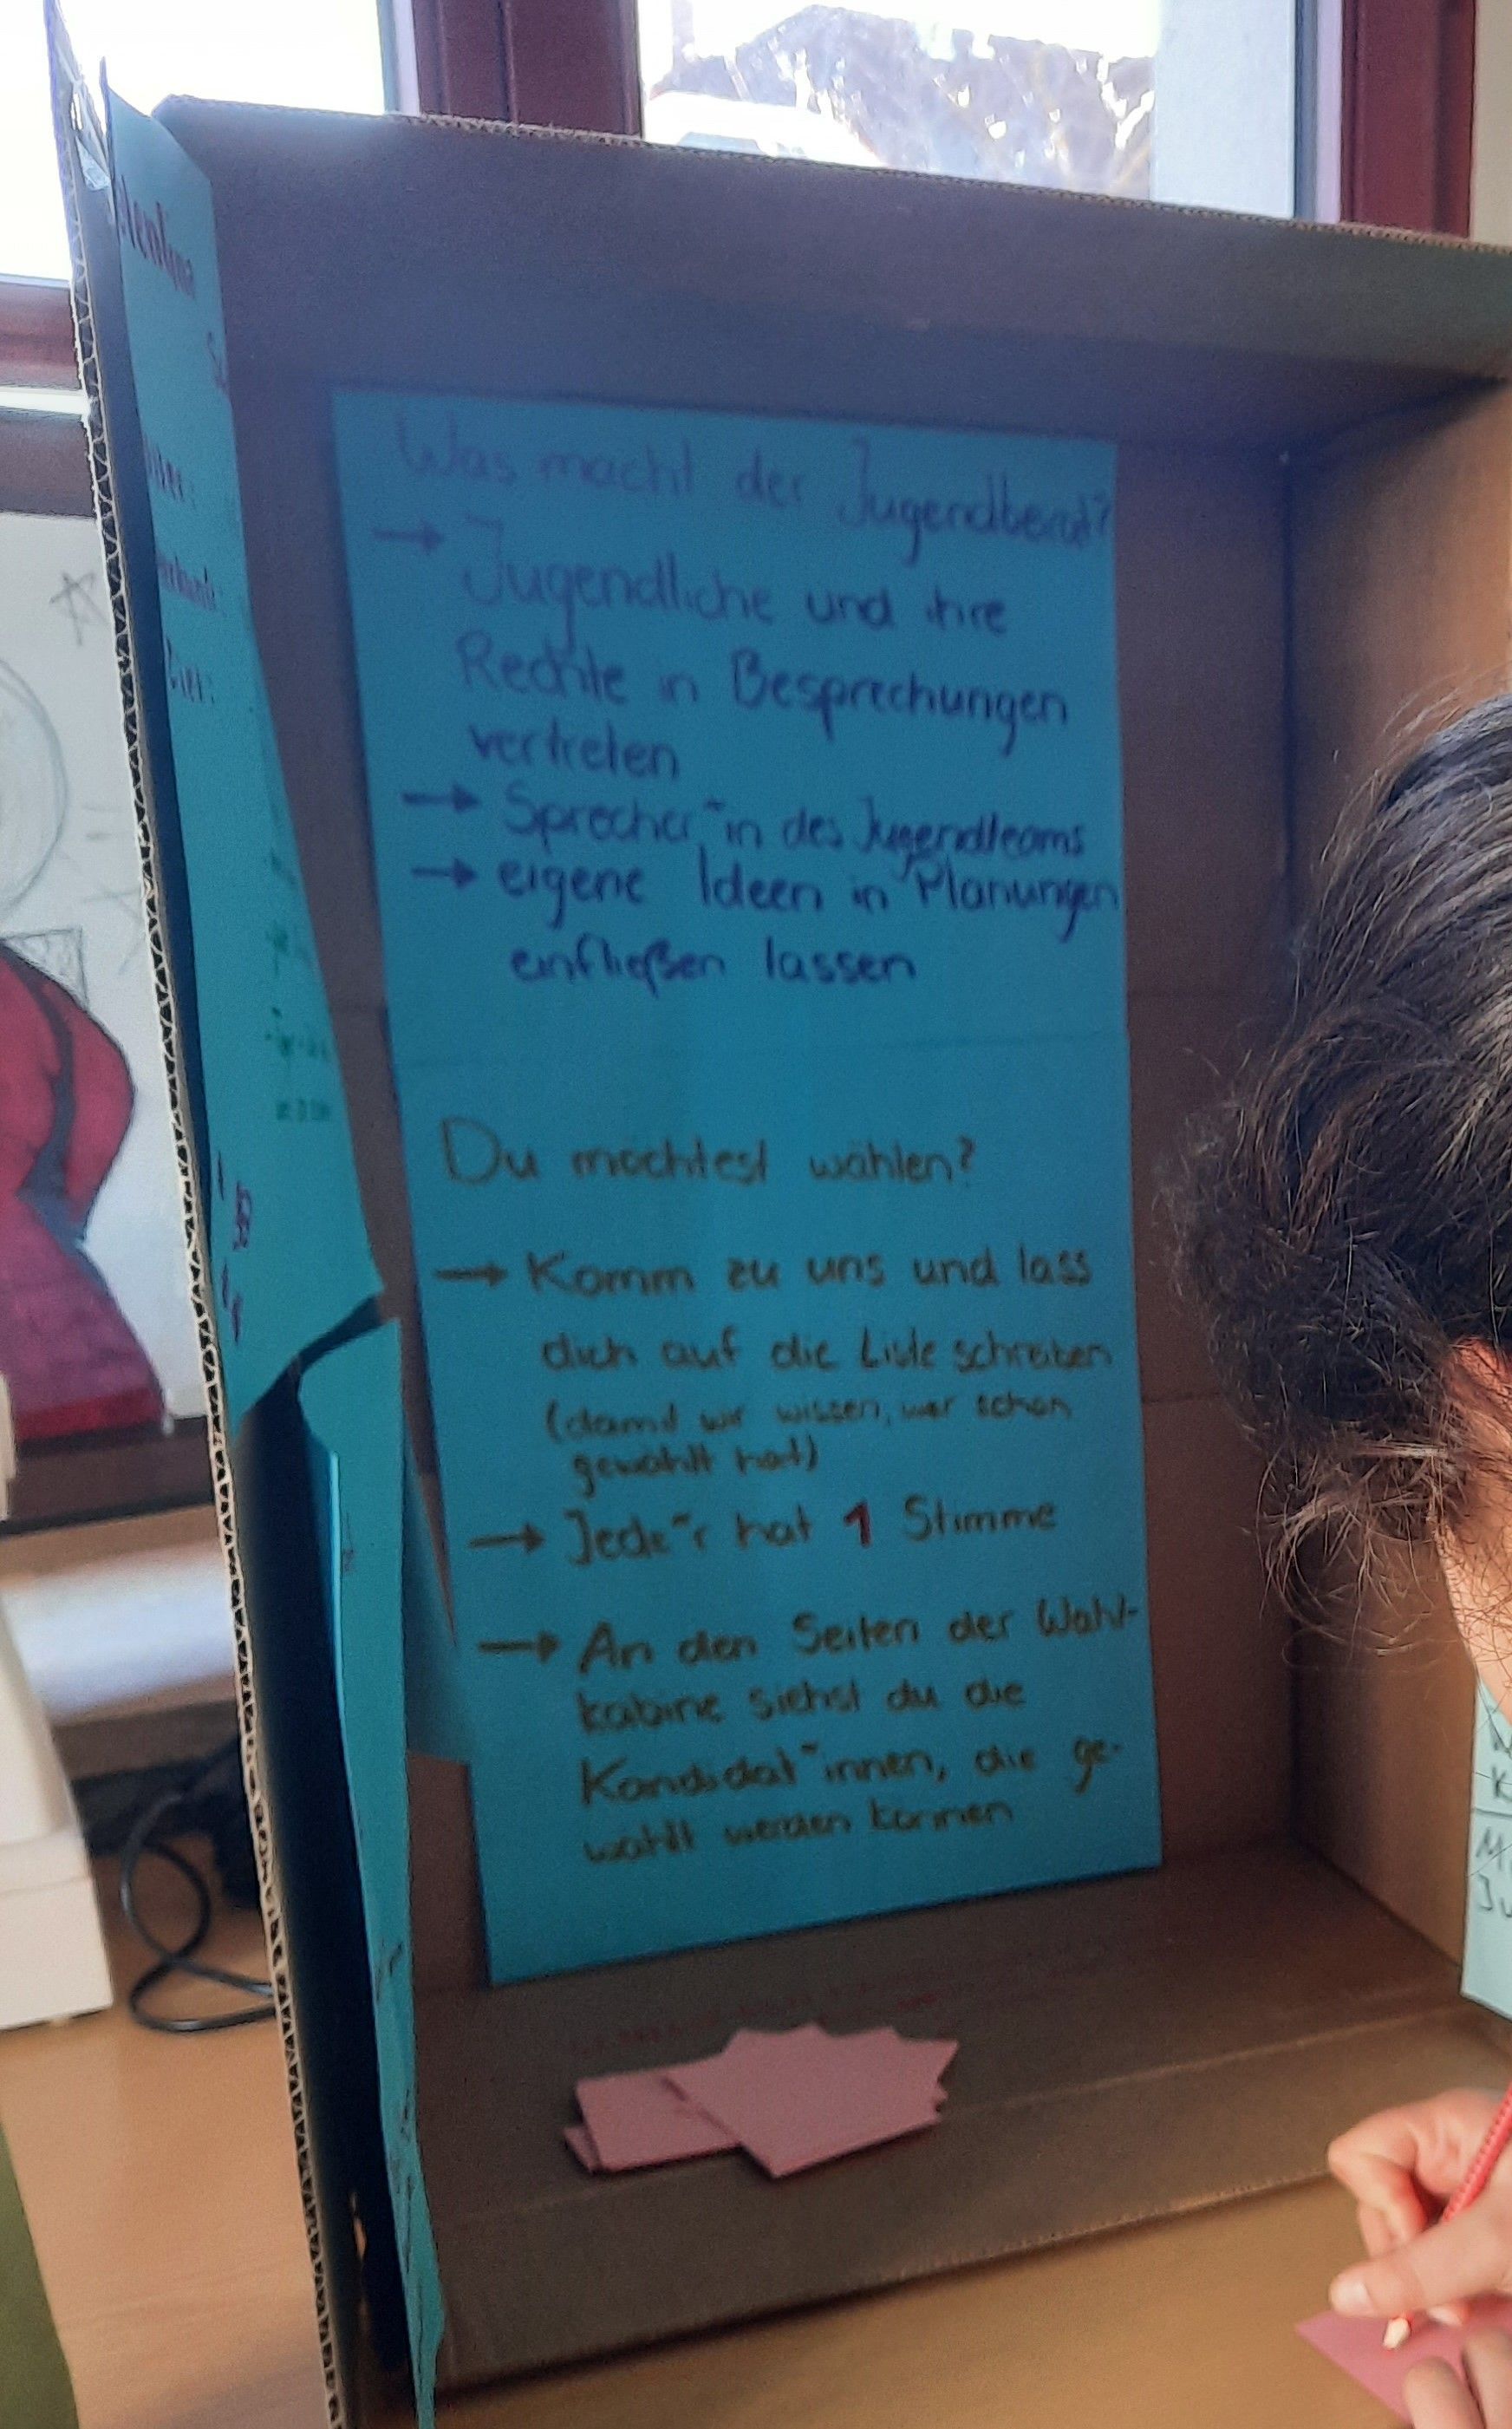 Was macht der Jugendbeirat?
→ Jugendliche und ihre
Rechte in Besprechungen
vertreten
→ Sprecher*in des Jugendteams
→ eigene Ideen in Planungen
einfließen lassen
Du möchtest wählen?
→ Komm zu uns und lass
dich auf die Liste schreiben
(damit wir wissen, wer schon
gewählt hat)
→ Jede*r hat 1 Stimme
→ An den Seiten der Wahl-
kabine siehst du die
Kandidat*innen, die ge-
wählt werden können